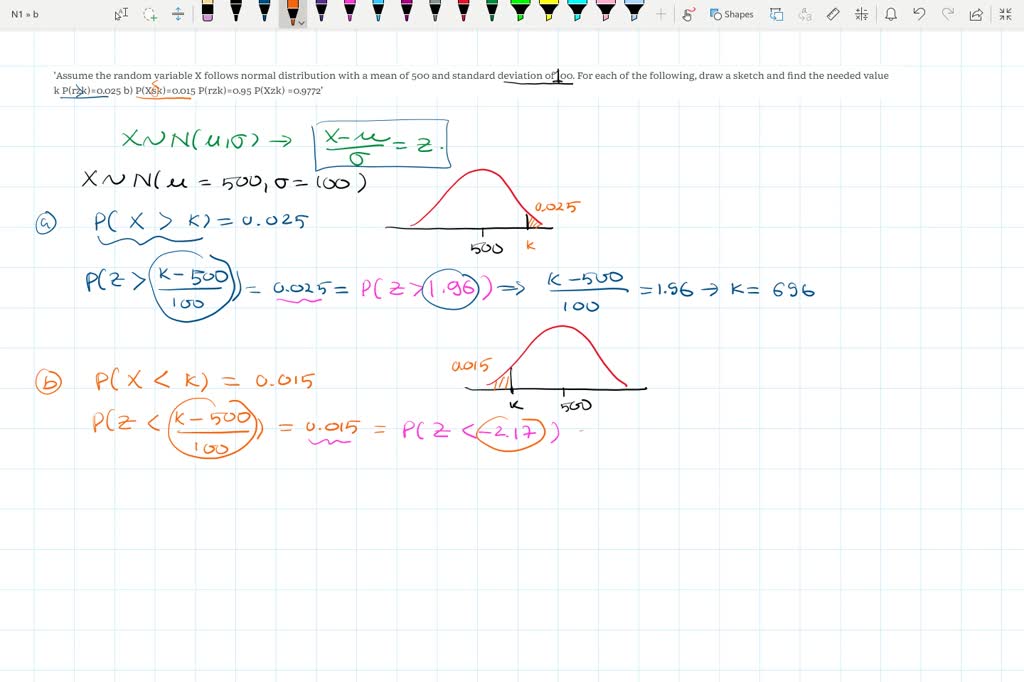 N1 » b
Shapes
'Assume the random variable X follows normal distribution with a mean of 500 and standard deviation of 100. For each of the following, draw a sketch and find the needed value
k P(r>k)=0.025 b) P(X≤k)=0.015 P(rzk)=0.95 P(Xzk) =0.9772'
X~N(μ,σ) → X-μ/σ = Z.
X~N(μ = 500, σ=100)
0.025
500 K
a P(X > K) = 0.025
P(Z > K-500/100) = 0.025 = P(Z>1.96) ⇒ K-500/100 = 1.96 → K= 696
0.015
K 500
b P(X < K) = 0.015
P(Z < K-500/100) = 0.015 = P(Z <-2.17)